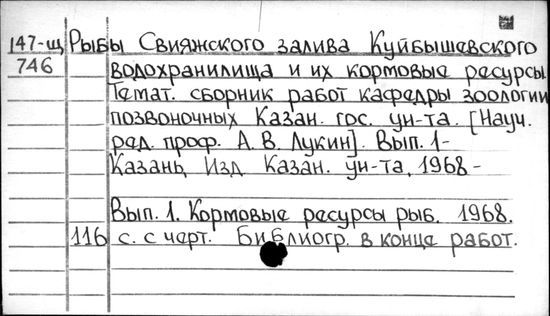 147-щ Рыбы Свияжского залива Куйбышевского
746 водохранилища и их кормовые ресурсы.
Темат. сборник работ кафедры зоологии
позвоночных Казан. гос. ун-та. [Науч.
ред. проф. А. В. Лукин]. Вып. 1-
Казань, Изд. Казан. ун-та, 1968 -
Вып. 1. Кормовые ресурсы рыб. 1968.
116 с. с черт. Библиогр. в конце работ.